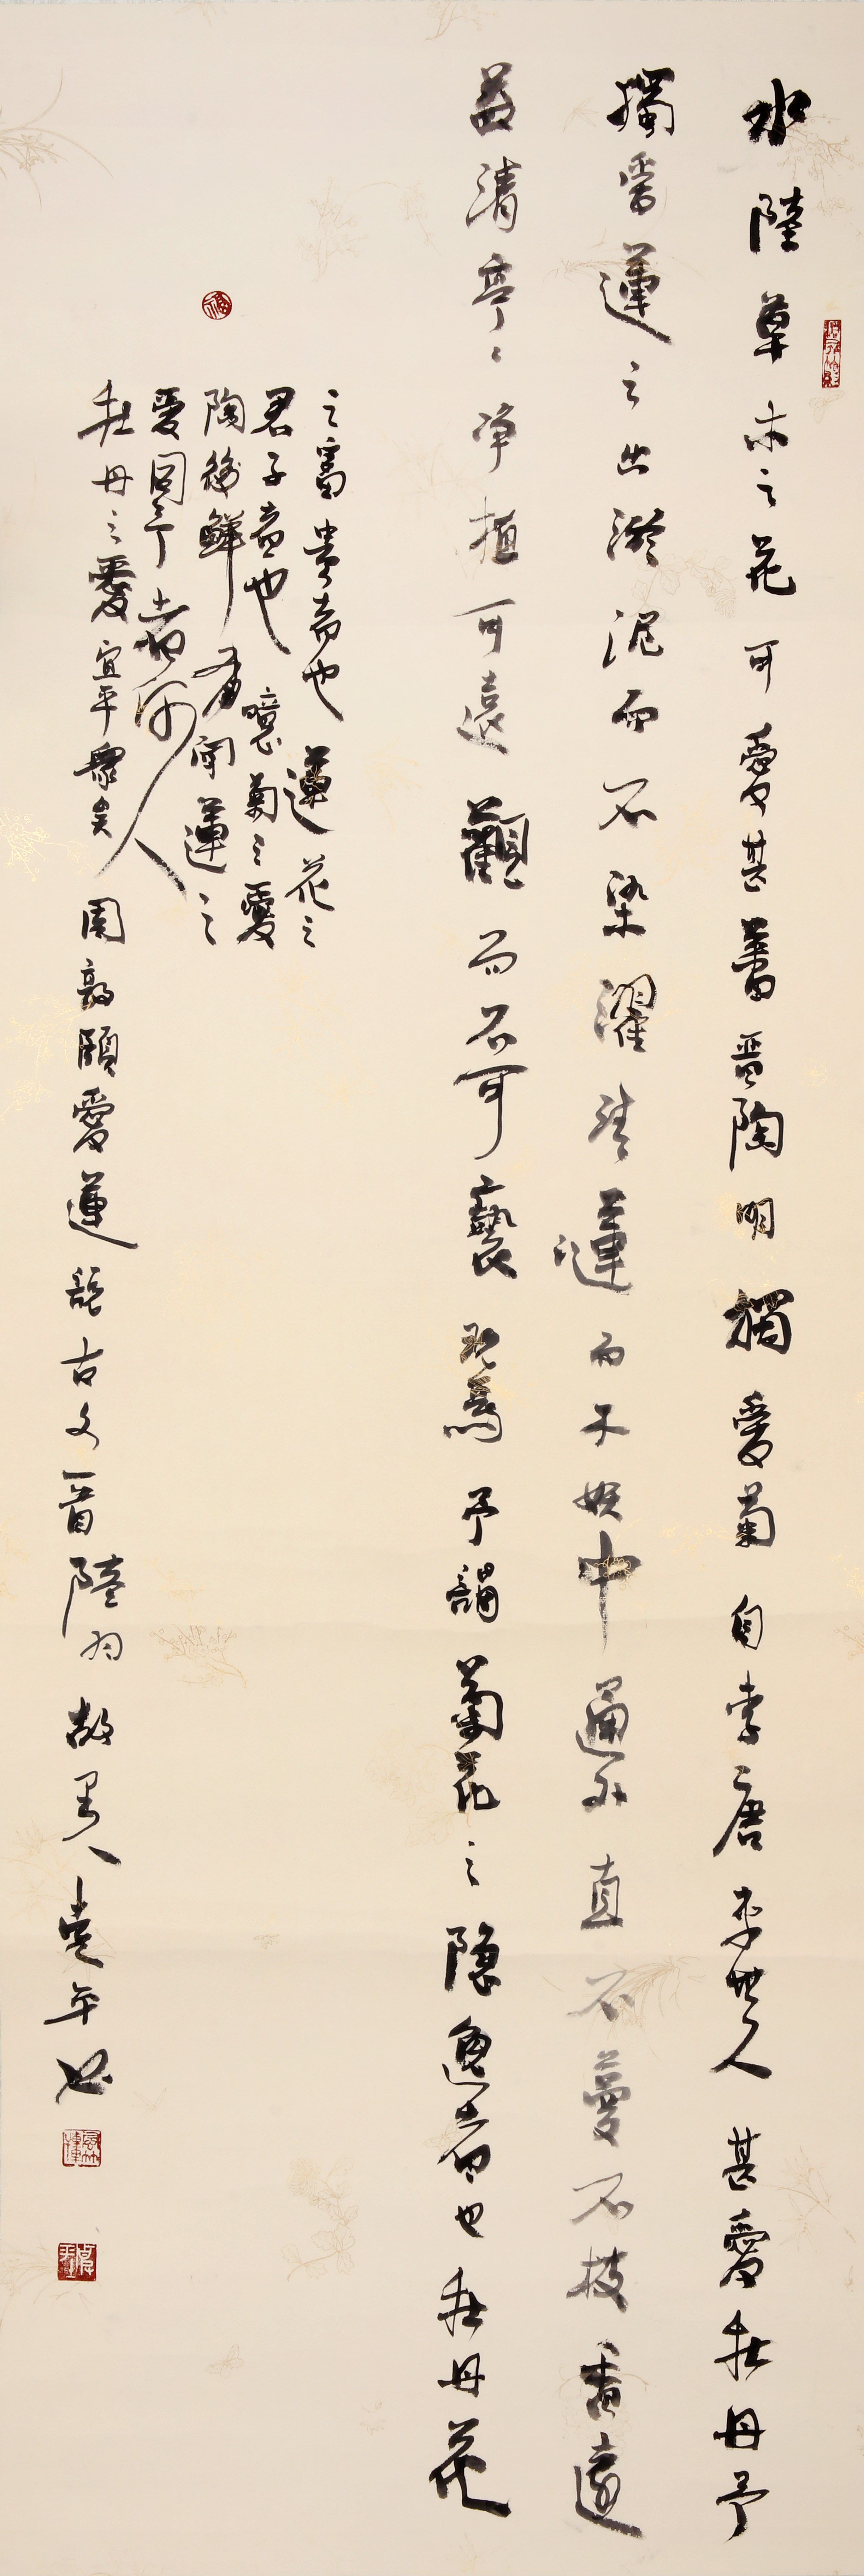 水陸草木之花可愛甚蕃晉陶明獨愛菊自李唐來世人甚愛牡丹予
獨愛蓮之出淤泥而不染濯清漣而不妖中通外直不蔓不枝香遠
益清亭亭净植可遠觀而不可褻玩焉予謂菊花之隱逸者也牡丹花
之富貴者也蓮花之
君子者也噫菊之愛
陶後鮮有聞蓮之
愛同予者何人
牡丹之愛宜乎衆矣周敦頤愛蓮說古文一首陸羽故里人堯平書